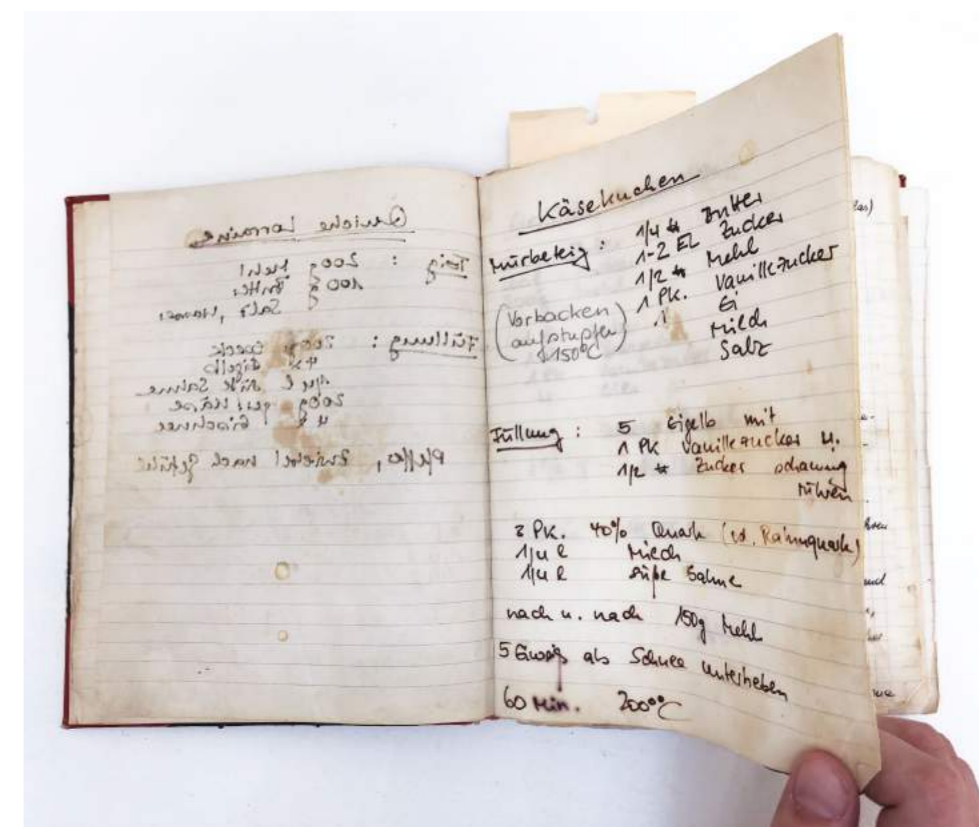 Quiche Lorraine
Teig : 200g Mehl
100 g Butter
Salz, Wasser
Füllung : 200g
4 Eigelb
1/4 l süße Sahne
200g ger. Käse
4 Eischnee
Pfeffer, Zwiebel nach Gefühl
Käsekuchen
Mürbeteig : 1/4 ℔ Butter
1-2 EL Zucker
1/2 ℔ Mehl
1 Pk. Vanillezucker
1 Ei
Milch
Salz
(Vorbacken
aufstupfen)
150°C
Füllung : 5 Eigelb mit
1 Pk Vanillezucker u.
1/2 ℔ Zucker schaumig
rühren
2 Pk. 40% Quark (od. Rahmquark)
1/4 l Milch
1/4 l süße Sahne
nach u. nach 150g Mehl
5 Eiweiß als Schnee unterheben
60 Min. 200°C